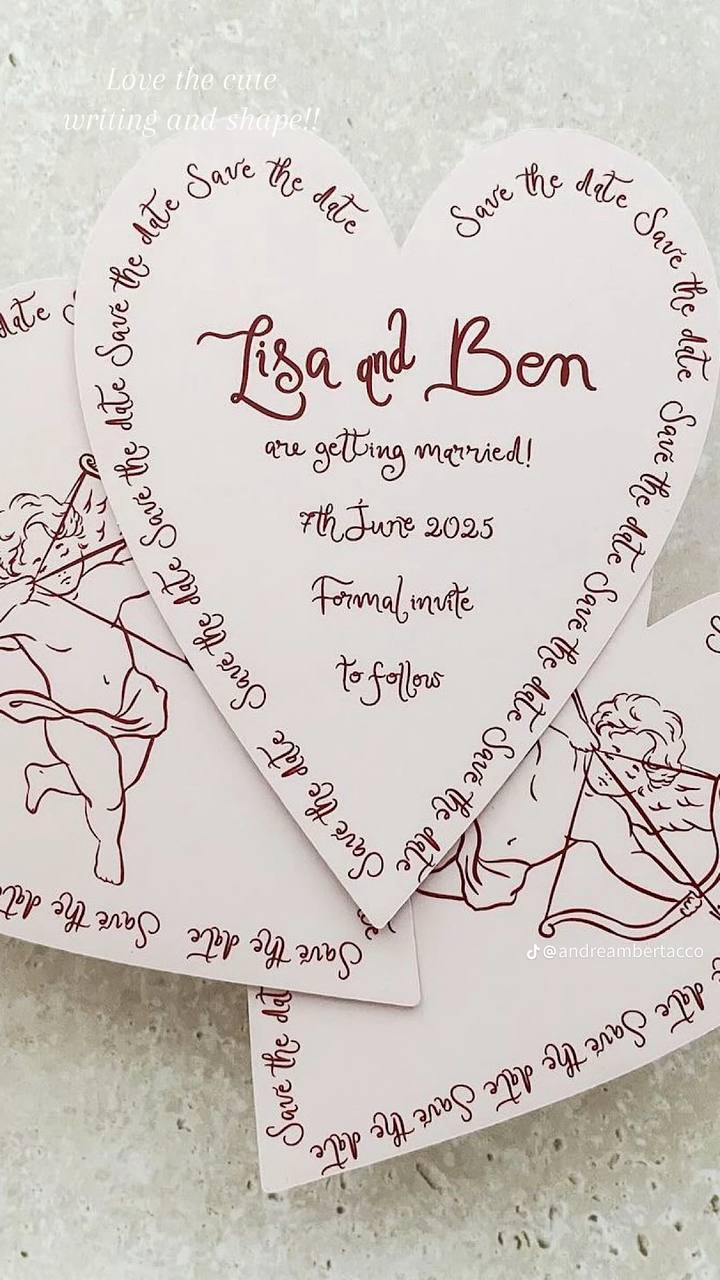 Love the cute
writing and shape!!
Save the date Save the date Save the date Save the date Save the date
Save the date Save the date Save the date Save the date Save the date
Lisa and Ben
are getting married!
7th June 2025
Formal invite
to follow
date
Save the date Save the date
@andreambertacco
date Save the date Save the date
Save the date